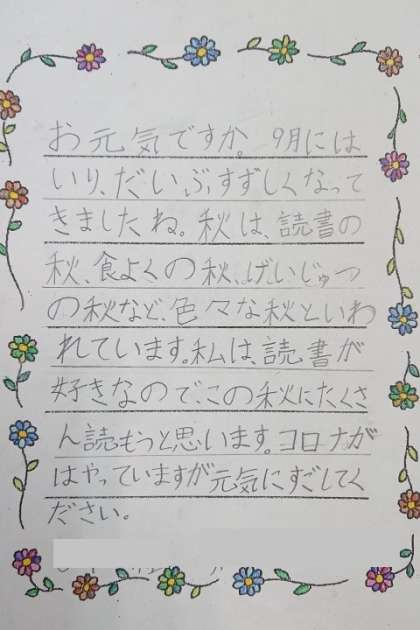 お元気ですか。9月には
いり、だいぶすずしくなって
きましたね。秋は、読書の
秋、食よくの秋、げいじゅつ
の秋など、色々な秋といわ
れています。私は、読書が
好きなので、この秋にたくさ
ん読もうと思います。コロナが
はやっていますが元気にすごしてく
ださい。